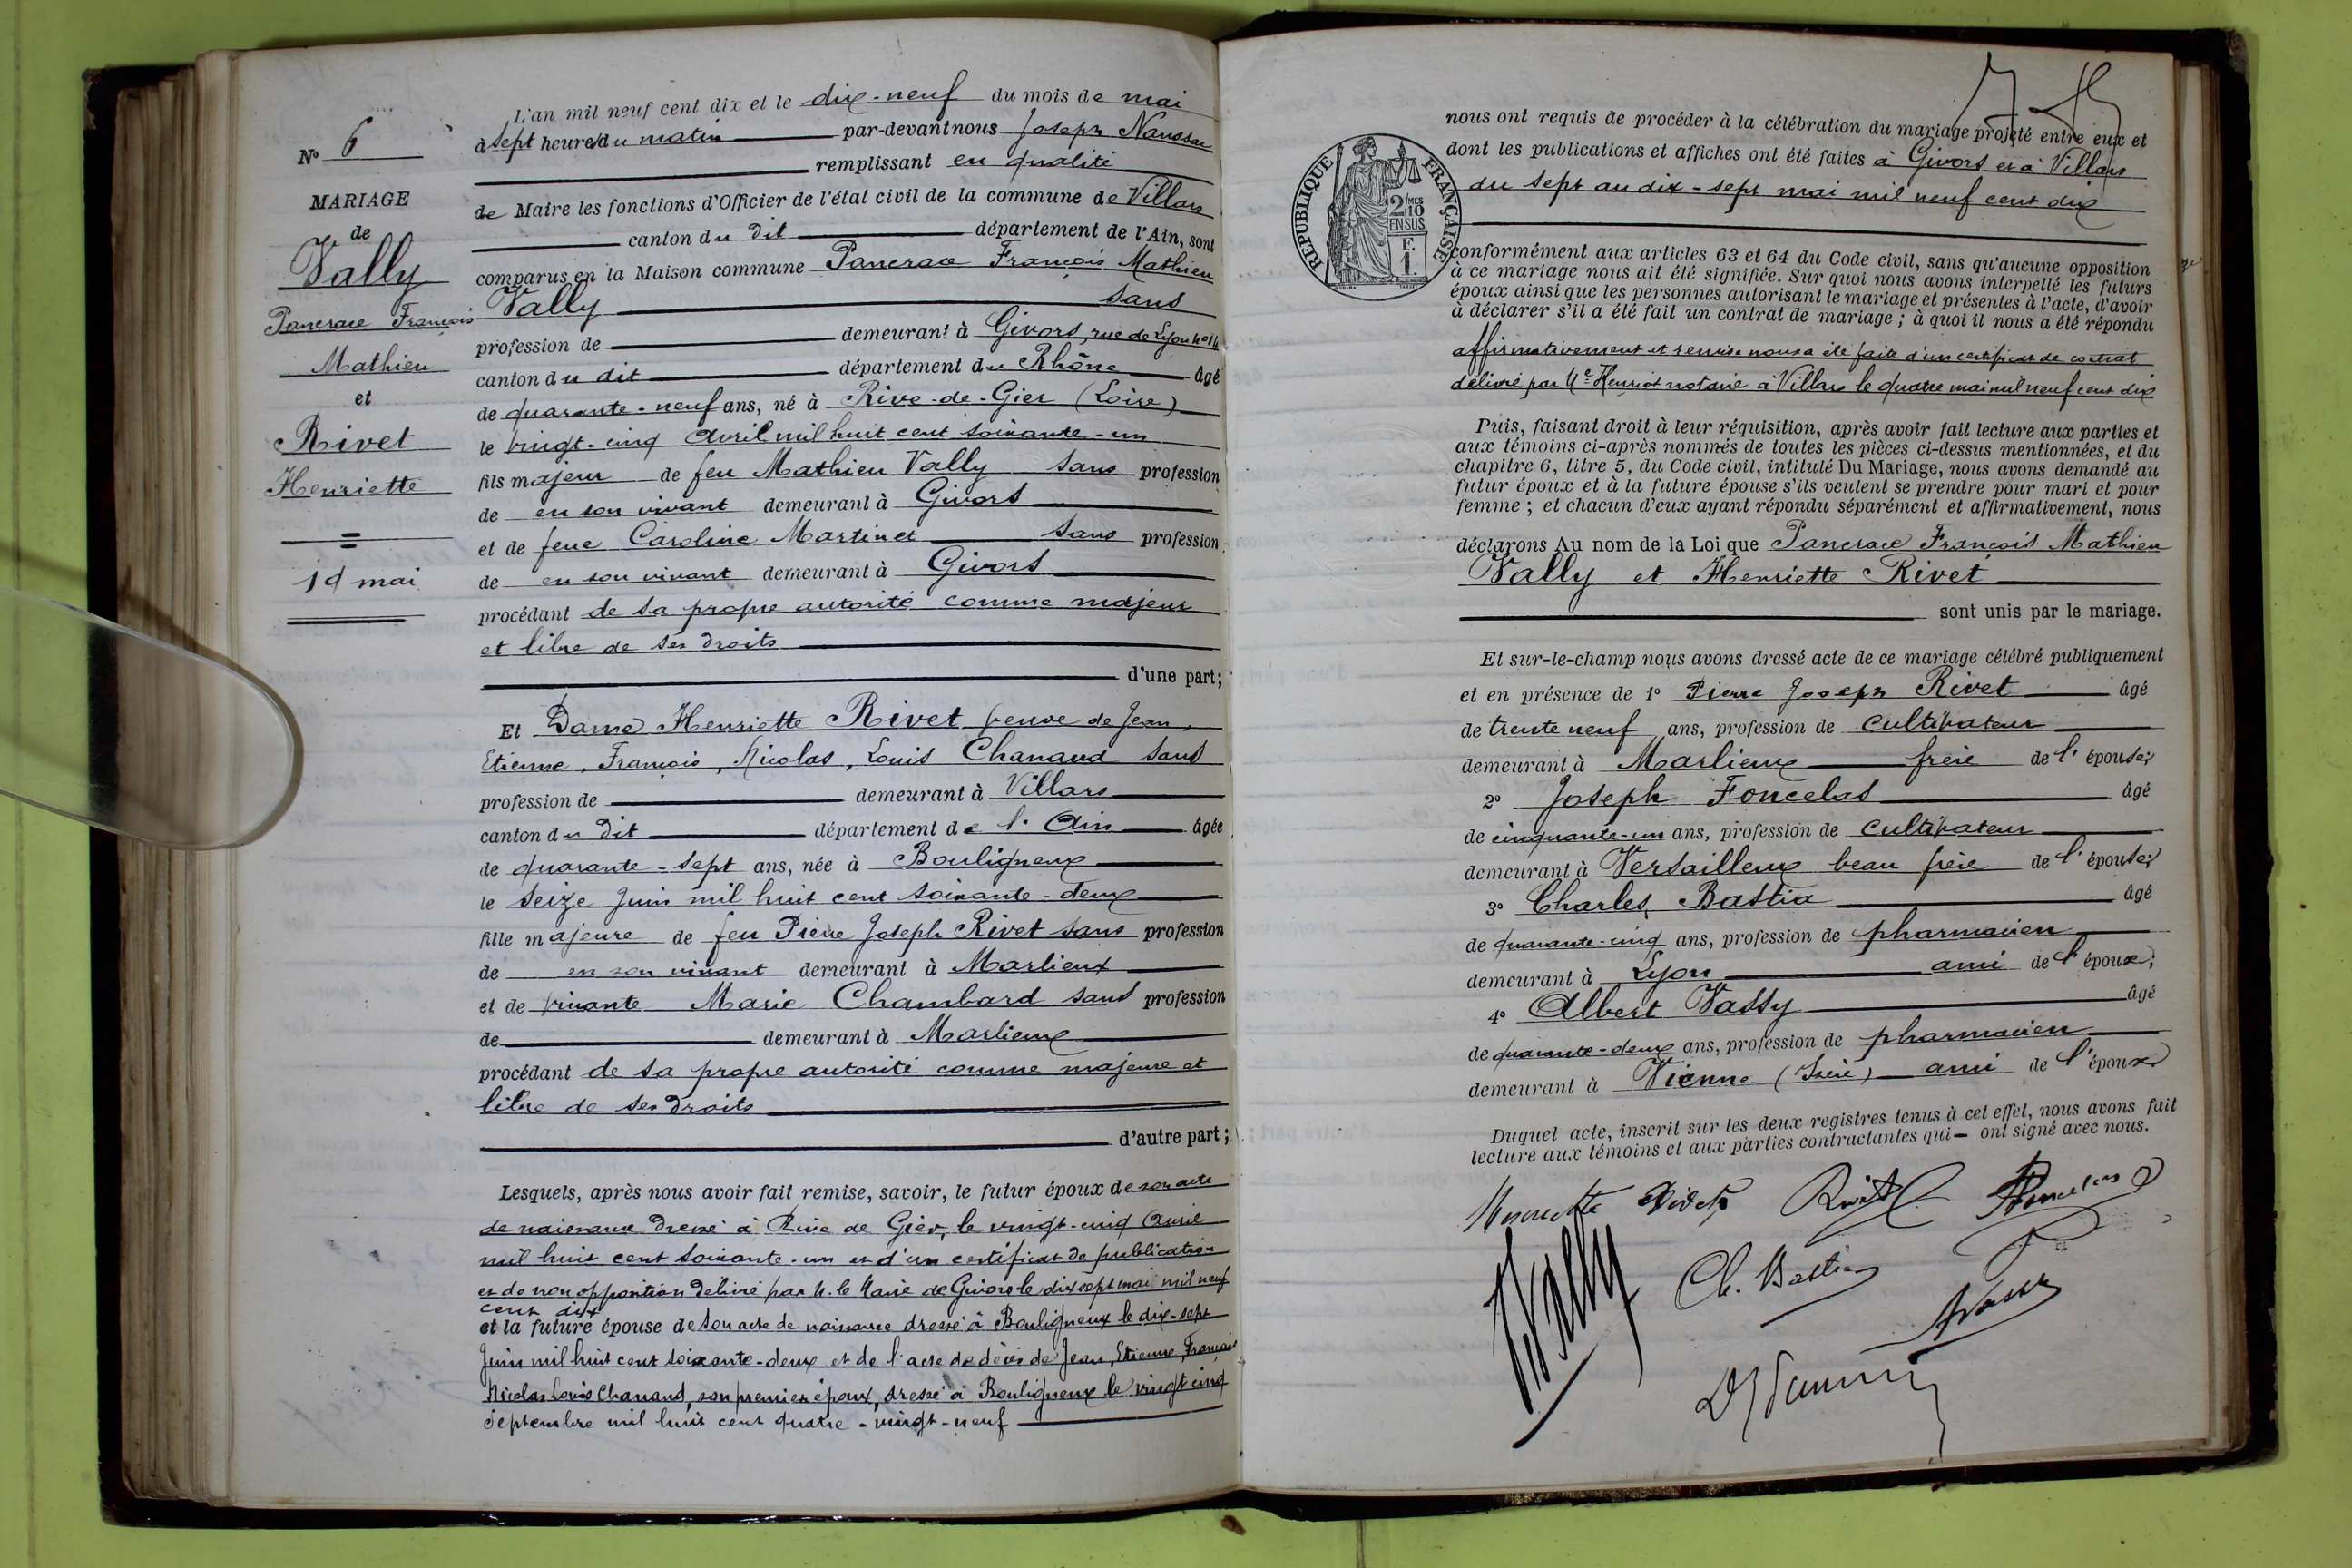 N° 6
MARIAGE
de
Vally
Pancrace François
Mathieu
et
Rivet
Henriette
19 mai
L'an mil neuf cent dix et le dix-neuf du mois de mai
à sept heures du matin par-devant nous Joseph Naussac
remplissant en qualité
de Maire les fonctions d'Officier de l'état civil de la commune de Villars
canton du dit département de l'Ain, sont
comparus en la Maison commune Pancrace François Mathieu
Vally sans
profession de demeurant à Givors, rue de Lyon n° 14
canton du dit département du Rhône âgé
de quarante-neuf ans, né à Rive-de-Gier (Loire)
le vingt-cinq Avril mil huit cent soixante-un
fils majeur de feu Mathieu Vally sans profession
de en son vivant demeurant à Givors
et de feue Caroline Martinet sans profession
de en son vivant demeurant à Givors
procédant de sa propre autorité comme majeur
et libre de ses droits
d'une part;
Et Dame Henriette Rivet veuve de Jean,
Etienne, François, Nicolas, Louis Chanaud sans
profession de demeurant à Villars
canton du dit département de l'Ain âgée
de quarante-sept ans, née à Bouligneux
le seize Juin mil huit cent soixante-deux
fille majeure de feu Pierre Joseph Rivet sans profession
de en son vivant demeurant à Marlieux
et de vivante Marie Chambard sans profession
de demeurant à Marlieux
procédant de sa propre autorité comme majeure et
libre de ses droits
d'autre part;
Lesquels, après nous avoir fait remise, savoir, le futur époux de son acte
de naissance dressé à Rive de Gier, le vingt-cinq Avril
mil huit cent soixante-un et d'un certificat de publication
et de non opposition délivré par M. le Maire de Givors le dix sept mai mil neuf
cent dix
et la future épouse de son acte de naissance dressé à Bouligneux le dix-sept
Juin mil huit cent soixante-deux et de l'acte de décès de Jean, Etienne, François
Nicolas Louis Chanaud, son premier époux, dressé à Bouligneux le vingt cinq
Septembre mil huit cent quatre-vingt-neuf
RÉPUBLIQUE FRANÇAISE
2 MES
10
EN SUS
F.
1.
nous ont requis de procéder à la célébration du mariage projeté entre eux et
dont les publications et affiches ont été faites à Givors et à Villars
du sept au dix-sept mai mil neuf cent dix
conformément aux articles 63 et 64 du Code civil, sans qu'aucune opposition
à ce mariage nous ait été signifiée. Sur quoi nous avons interpellé les futurs
époux ainsi que les personnes autorisant le mariage et présentes à l'acte, d'avoir
à déclarer s'il a été fait un contrat de mariage ; à quoi il nous a été répondu
affirmativement et remise nous a été faite d'un certificat de contrat
délivré par Me Henriot notaire à Villars le quatre mai mil neuf cent dix
Puis, faisant droit à leur réquisition, après avoir fait lecture aux parties et
aux témoins ci-après nommés de toutes les pièces ci-dessus mentionnées, et du
chapitre 6, titre 5, du Code civil, intitulé Du Mariage, nous avons demandé au
futur époux et à la future épouse s'ils veulent se prendre pour mari et pour
femme ; et chacun d'eux ayant répondu séparément et affirmativement, nous
déclarons Au nom de la Loi que Pancrace François Mathieu
Vally et Henriette Rivet
sont unis par le mariage.
Et sur-le-champ nous avons dressé acte de ce mariage célébré publiquement
et en présence de 1° Pierre Joseph Rivet âgé
de trente neuf ans, profession de cultivateur
demeurant à Marlieux frère de l'épouse;
2° Joseph Foncelas âgé
de cinquante-un ans, profession de cultivateur
demeurant à Versailleux beau frère de l'épouse;
3° Charles Bastia âgé
de quarante-cinq ans, profession de pharmacien
demeurant à Lyon ami de l'époux;
4° Albert Vassy âgé
de quarante-deux ans, profession de pharmacien
demeurant à Vienne (Isère) ami de l'époux
Duquel acte, inscrit sur les deux registres tenus à cet effet, nous avons fait
lecture aux témoins et aux parties contractantes qui ont signé avec nous.
Henriette Rivet Rivet
Vally Ch. Bastia